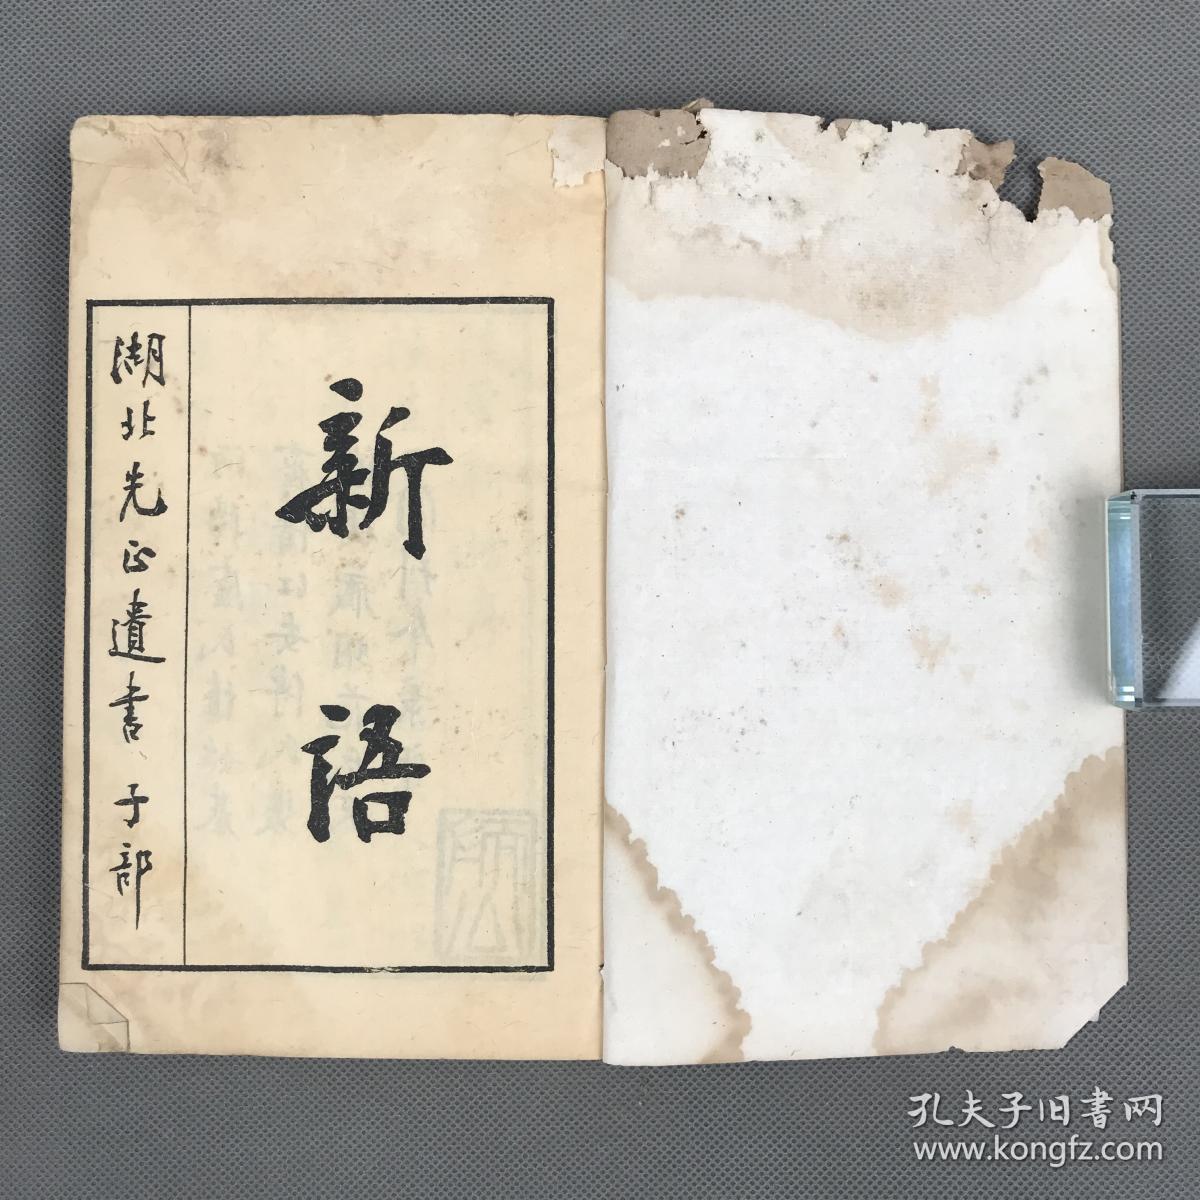 新語
湖北先正遺書 子部
孔夫子旧書网
www.kongfz.com